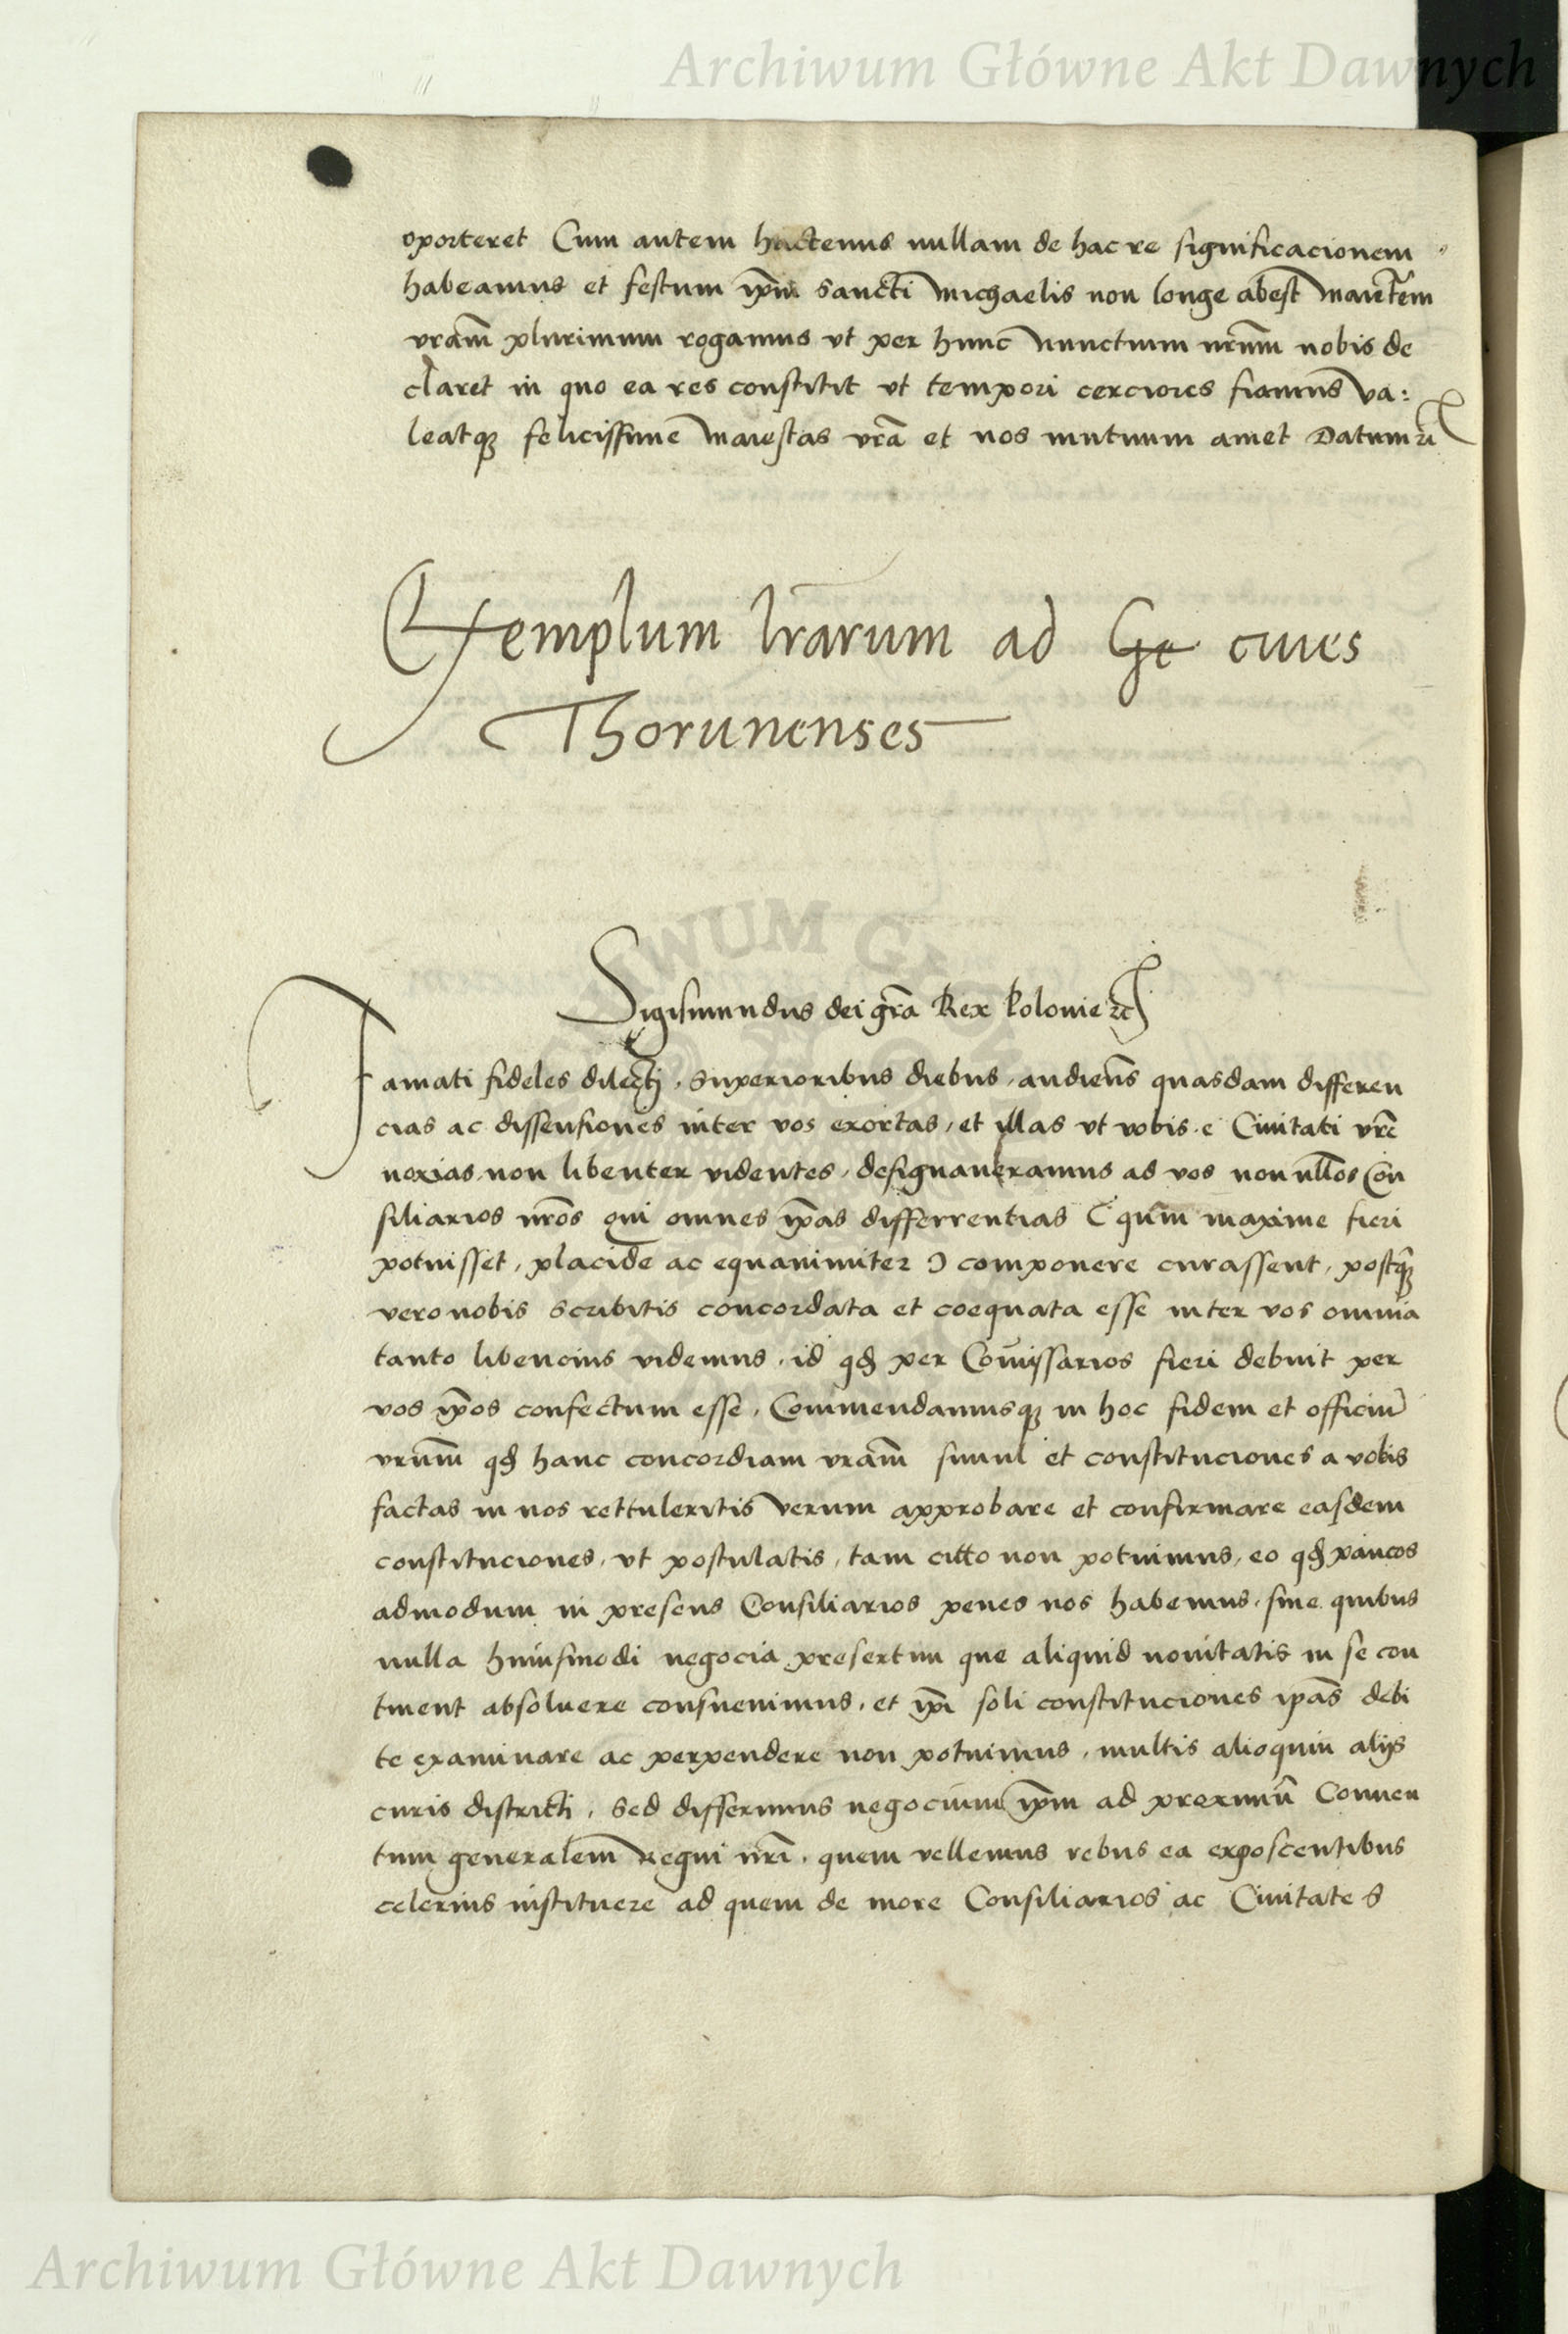 Archiwum Główne Akt Dawnych
oporteret Cum autem hactenus nullam de hac re significacionem
habeamus et festum ip̄m Sancti Michaelis non longe abest Maiestatē
vrām plurimum rogamus vt per hunc Nunctium nrūm nobis de
claret in quo ea res constitit vt tempori cerciores fiamus va:
leatqꝫ felicissime Maiestas vrā et nos mutuum amet Datum ꝛc
Exemplum lrārum ad Ge ciues
Thorunenses
Sigismundus dei grā Rex Polonie ꝛc
Famati fideles dilecti, Superioribus diebus, audiens quasdam differen
cias ac dissensiones inter vos exortas, et illas vt vobis e Ciuitati vrē
noxias, non libenter videntes, designaueramus ad vos non nll̄os Con
siliarios nrōs qui omnes ip̄as differrentias C qūm maxime fieri
potuisset, placide ac equanimiter Ͻ componere curassent, postqꝫ̄
vero nobis scribitis concordata et coequata esse inter vos omnia
tanto libencius videmus, id qđ per Com̄issarios fieri debuit per
vos ip̄os confectum esse, Commendamusqꝫ in hoc fidem et officiū
vrūm qđ hanc concordiam vrām simul et constituciones a vobis
factas in nos rettuleritis Verum approbare et confirmare easdem
constituciones, vt postulatis, tam citto non potuimus, eo qđ paucos
admodum in presens Consiliarios penes nos habemus, sine quibus
nulla huiusmodi negocia presertim que aliquid nouitatis in se con
tinent absoluere consueuimus, et ip̄i soli constituciones ipās debi
te examinare ac perpendere non potuimus, multis alioquin alijs
curis districti, Sed differimus negocium ip̄m ad proximū Conuen
tum generalem Regni nrī, quem vellemus rebus ea exposcentibus
celerius instituere ad quem de more Consiliarios ac Ciuitates
Archiwum Główne Akt Dawnych